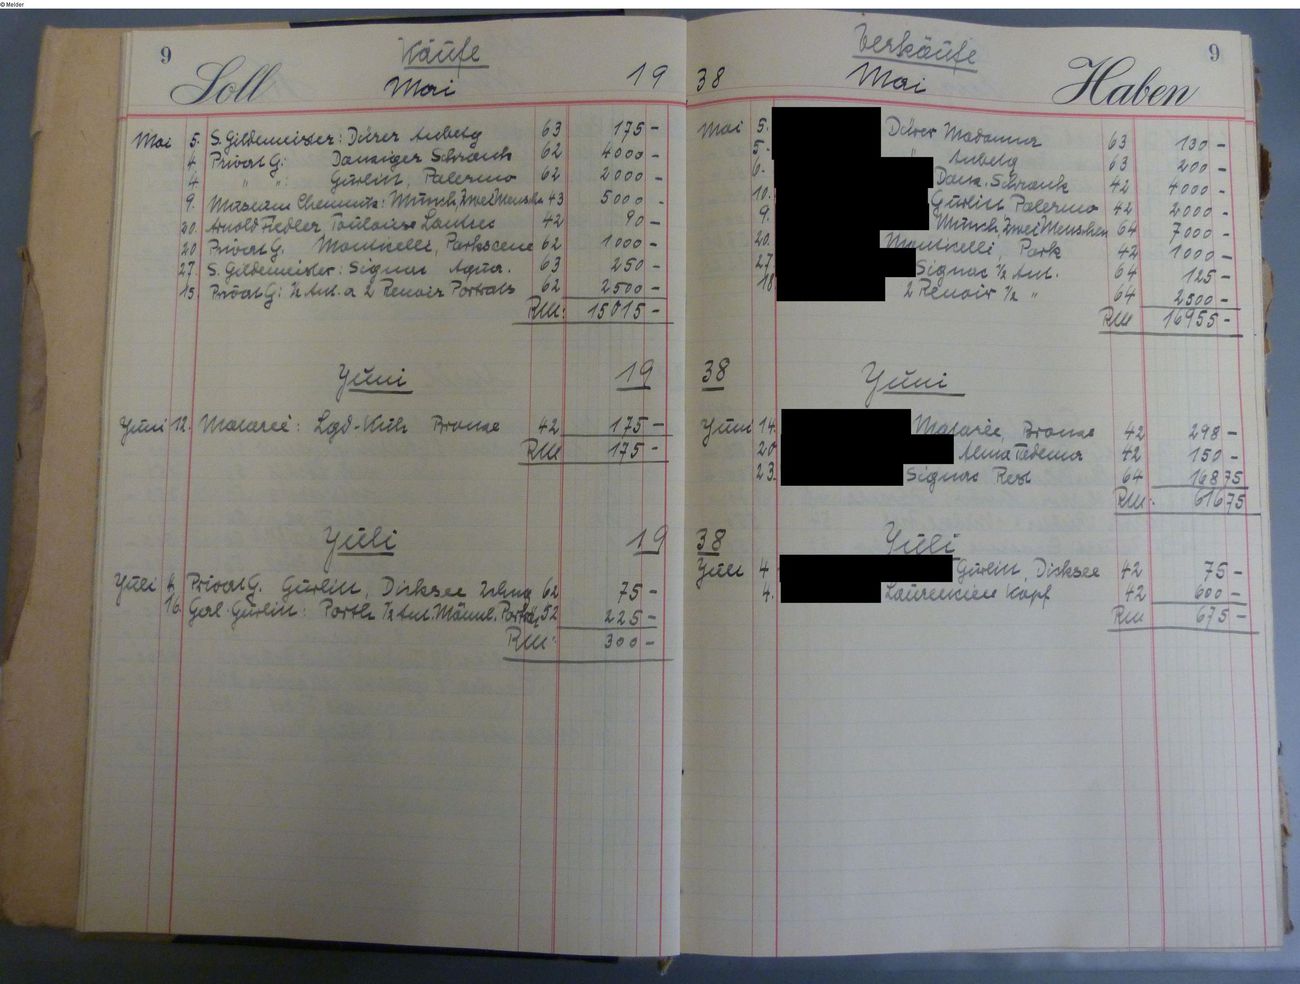 © Melder
9
Käufe
Soll Mai 19
Mai 5. S. Gildemeister: Dürer Anbetg 63 175 -
4. Privat G: Danziger Schrank 62 4000 -
4 " " : Gurlitt, Palermo 62 2000 -
9. Museum Chemnitz: Munch Zwei Menschen 43 5000 -
20. Arnold Fiedler Toulouse Lautrec 42 90 -
20 Privat G. Monticelli, Parkscene 62 1000 -
27. S. Gildemeister: Signac Aqua. 63 250 -
15. Privat G: ½ Ant. a 2 Renoir Portraits 62 2500 -
RM: 15015 -
Juni 19
Juni 12. Mataré: Lgd-Kuh Bronze 42 175 -
RM 175 -
Juli 19
Juli 4. Privat G. Gurlitt, Dirksee 62 75 -
16. Gurlitt: ½ Ant. Männl. Portr. 52 225 -
RM: 300 -
Verkäufe 9
38 Mai Haben
Mai 5. Dürer Madonna 63 130 -
5. " Anbetg 63 200 -
6. Danz. Schrank 42 4000 -
10. Gurlitt Palermo 42 2000 -
9. Munch Zwei Menschen 64 7000 -
20. Monticelli, Park 42 1000 -
27. Signac ½ Ant. 64 125 -
18 2 Renoir ½ " 64 2500 -
RM 16955 -
38 Juni
Juni 14. Mataré, Bronze 42 298 -
20. Alma Tadema 42 150 -
23. Signac Rest 64 168 75
RM: 616 75
38 Juli
Juli 4. Gurlitt, Dirksee 42 75 -
4. Laurencien Kopf 42 600 -
RM 675 -